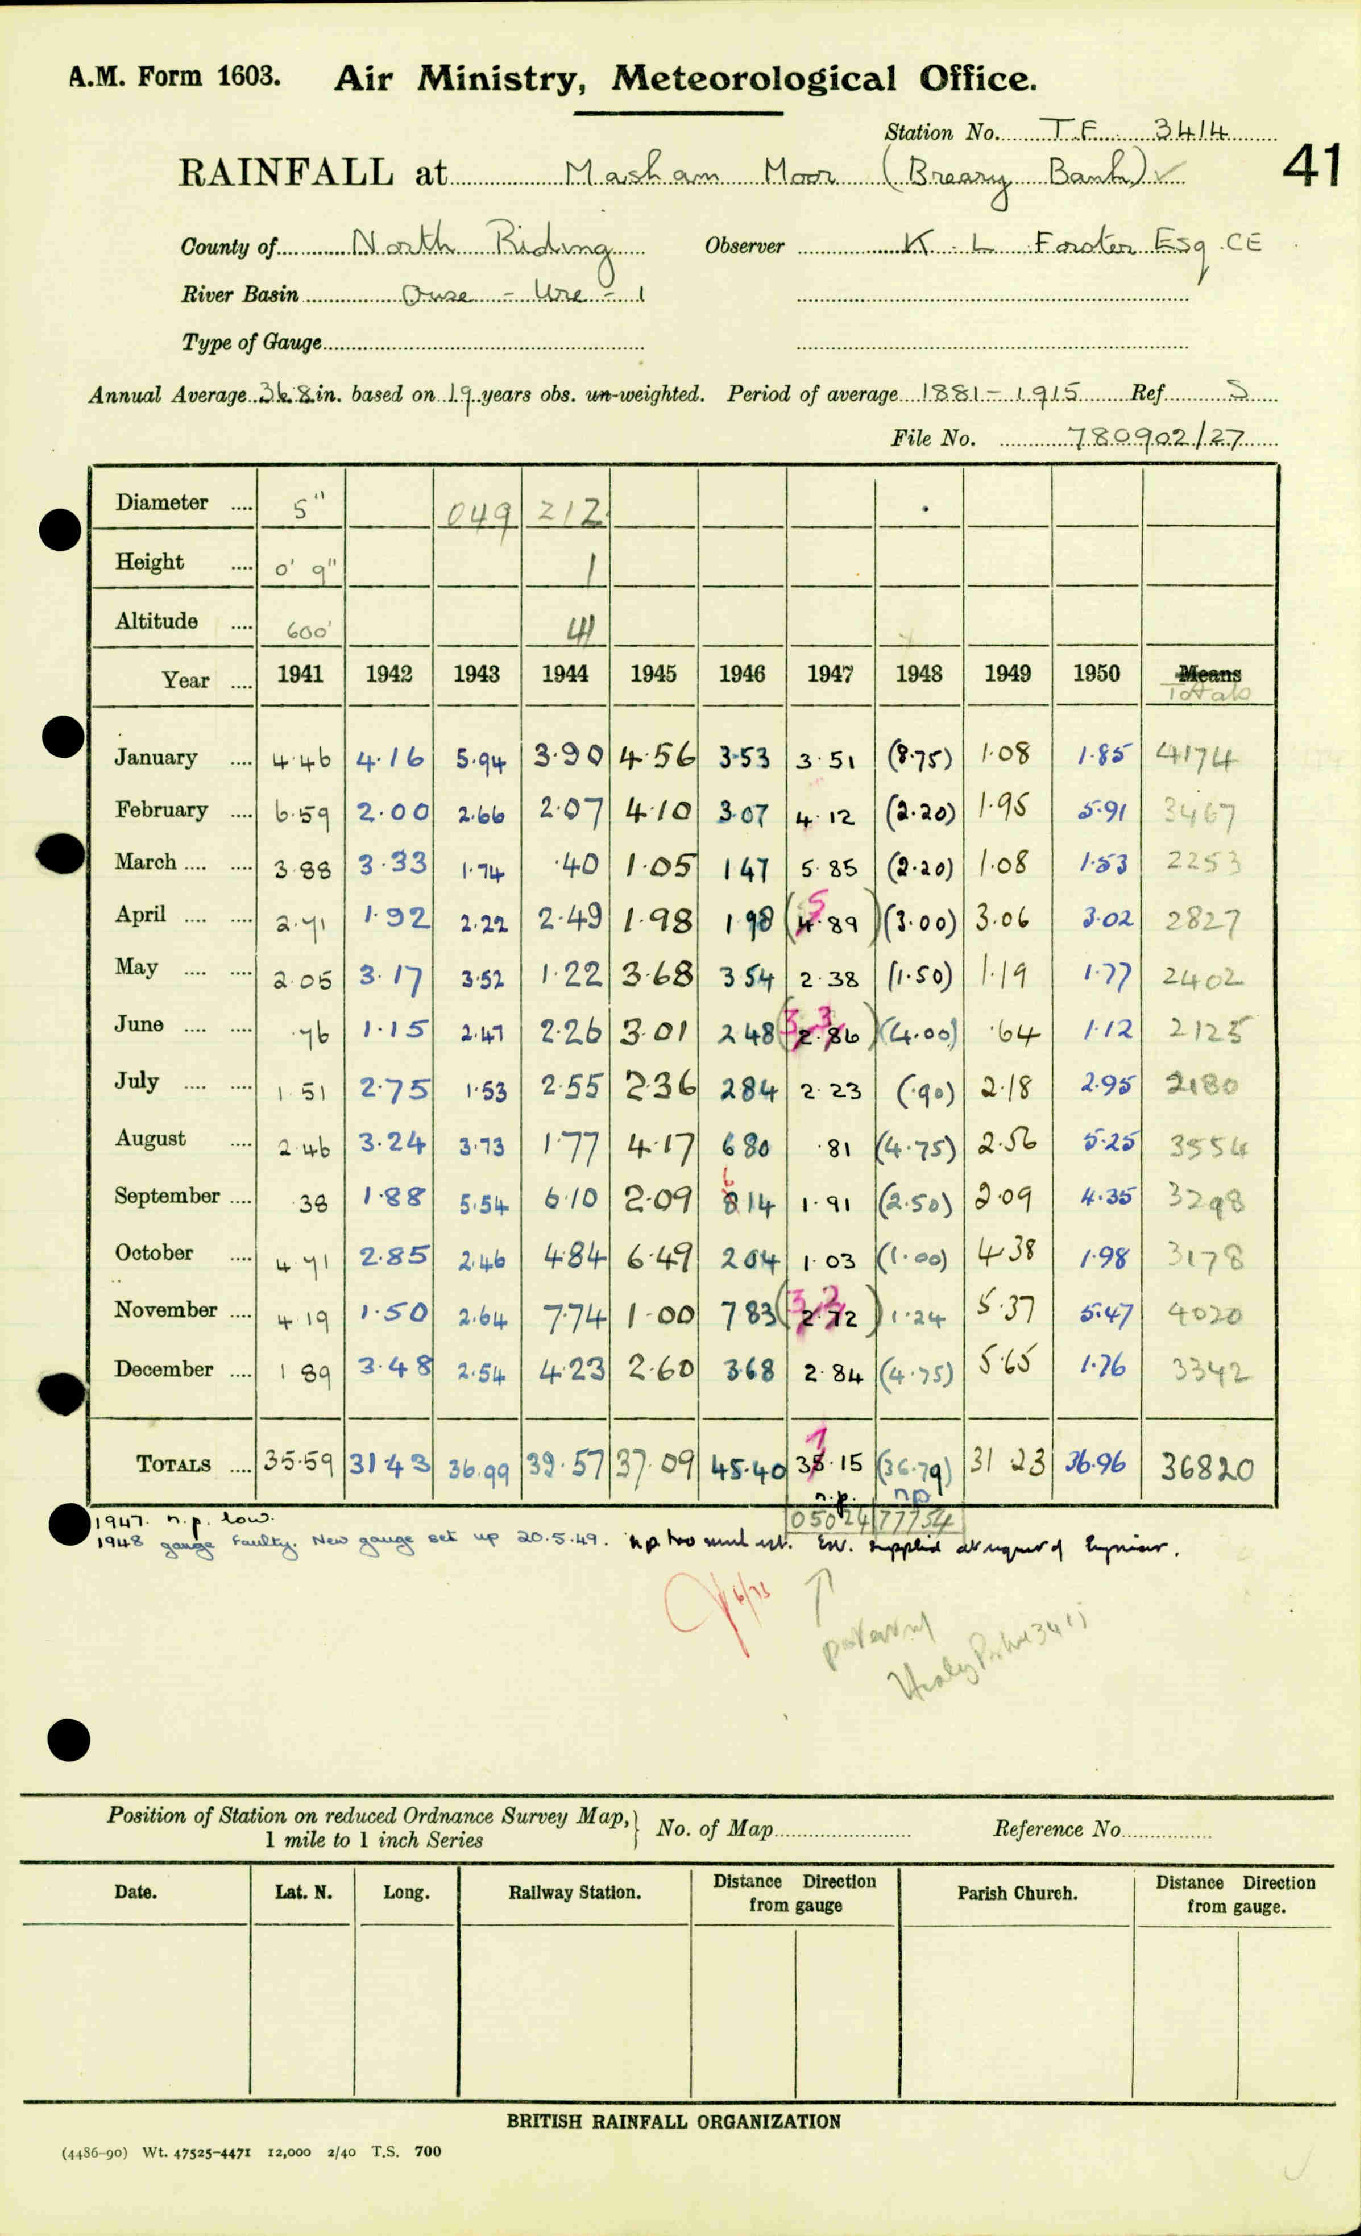 A.M. Form 1603. Air Ministry, Meteorological Office.
Station No. T.F. 3414
41
RAINFALL at Masham Moor (Breary Bank) ✓
County of North Riding Observer K. L. Forster Esq. CE
River Basin Ouse - Ure - 1
Type of Gauge
Annual Average 36.8 in. based on 19 years obs. un-weighted. Period of average 1881-1915 Ref. S
File No. 780902/27
Diameter .... 5" 049 212
Height .... 0' 9" 1
Altitude .... 600' 41
Year .... 1941 1942 1943 1944 1945 1946 1947 1948 1949 1950 Means Totals
January .... 4.46 4.16 5.94 3.90 4.56 3.53 3.51 (8.75) 1.08 1.85 4174
February .... 6.59 2.00 2.66 2.07 4.10 3.07 4.12 (2.20) 1.95 5.91 3467
March .... .... 3.88 3.33 1.74 .40 1.05 1 47 5.85 (2.20) 1.08 1.53 2253
April .... .... 2.71 1.92 2.22 2.49 1.98 1 98 (4.89) 5 (3.00) 3.06 3.02 2827
May .... .... 2.05 3.17 3.52 1.22 3.68 3 54 2.38 (1.50) 1.19 1.77 2402
June .... .... .76 1.15 2.47 2.26 3.01 2 48 (2.86) 3 3 (4.00) .64 1.12 2125
July .... .... 1 51 2.75 1.53 2.55 2.36 2 84 2.23 (.90) 2.18 2.95 2180
August .... 2.46 3.24 3.73 1.77 4.17 6 80 .81 (4.75) 2.56 5.25 3554
September .... .38 1.88 5.54 6.10 2.09 8 14 6 1.91 (2.50) 2.09 4.35 3298
October .... 4 71 2.85 2.46 4.84 6.49 2 04 1.03 (1.00) 4.38 1.98 3178
November .... 4 19 1.50 2.64 7.74 1.00 7 83 (2.72) 3 2 1.24 5.37 5.47 4020
December .... 1 89 3.48 2.54 4.23 2.60 3 68 2.84 (4.75) 5.65 1.76 3342
TOTALS .... 35.59 31.43 36.99 39.57 37.09 45.40 38.15 7 (36.79) 31 23 36.96 36820
n.p. np
05024 77754
1947. n.p. low.
1948 gauge faulty. New gauge set up 20.5.49. n.p. too until est. Est. supplied at request of Engineer.
6/73
Healey 3411
Position of Station on reduced Ordnance Survey Map, 1 mile to 1 inch Series No. of Map Reference No.
Date. Lat. N. Long. Railway Station. Distance Direction from gauge Parish Church. Distance Direction from gauge.
BRITISH RAINFALL ORGANIZATION
(4486-90) Wt. 47525-4471 12,000 2/40 T.S. 700